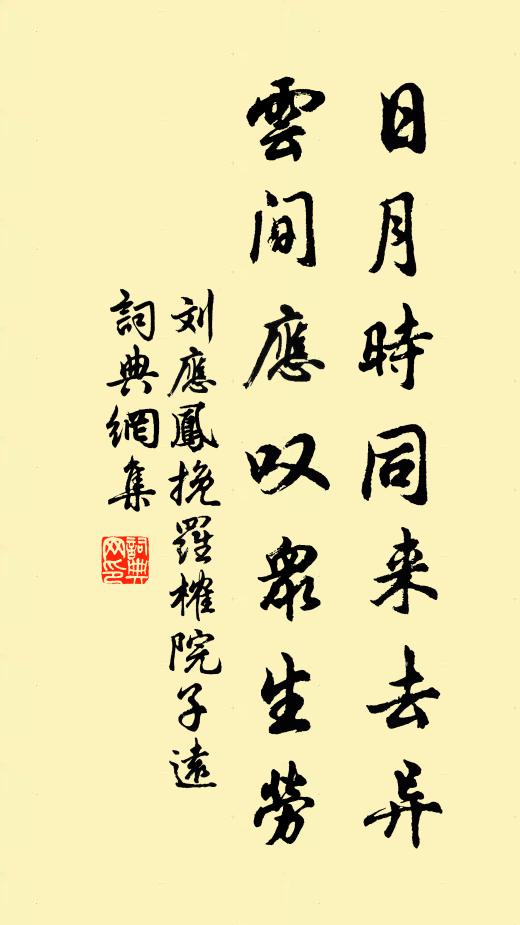 日月時同来去异
雲间應叹衆生勞
刘應鳳挽羅榷院子遠
詞典網集
詞典網印